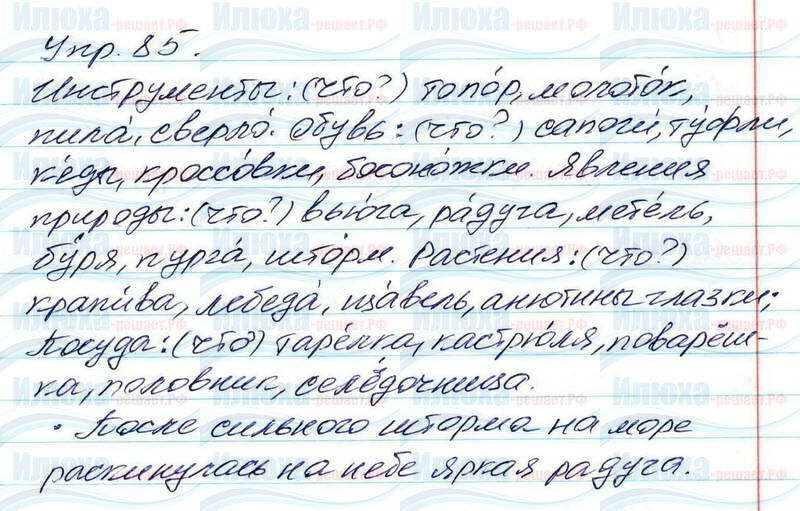 Упр. 85.
Инструменты: (что?) топо́р, молото́к,
пила́, сверло́. Обувь: (что?) сапоги́, ту́фли,
ке́ды, кроссо́вки, босоно́жки Явления
природы: (что?) вью́га, ра́дуга, мете́ль,
бу́ря, пурга́, што́рм. Растения: (что?)
крапи́ва, лебеда́, ща́вель, анютины глазки;
Посуда: (что) таре́лка, кастрю́ля, поварёш-
ка, половник, селёдочница.
• После сильного шторма на море
раскинулась на небе яркая радуга.